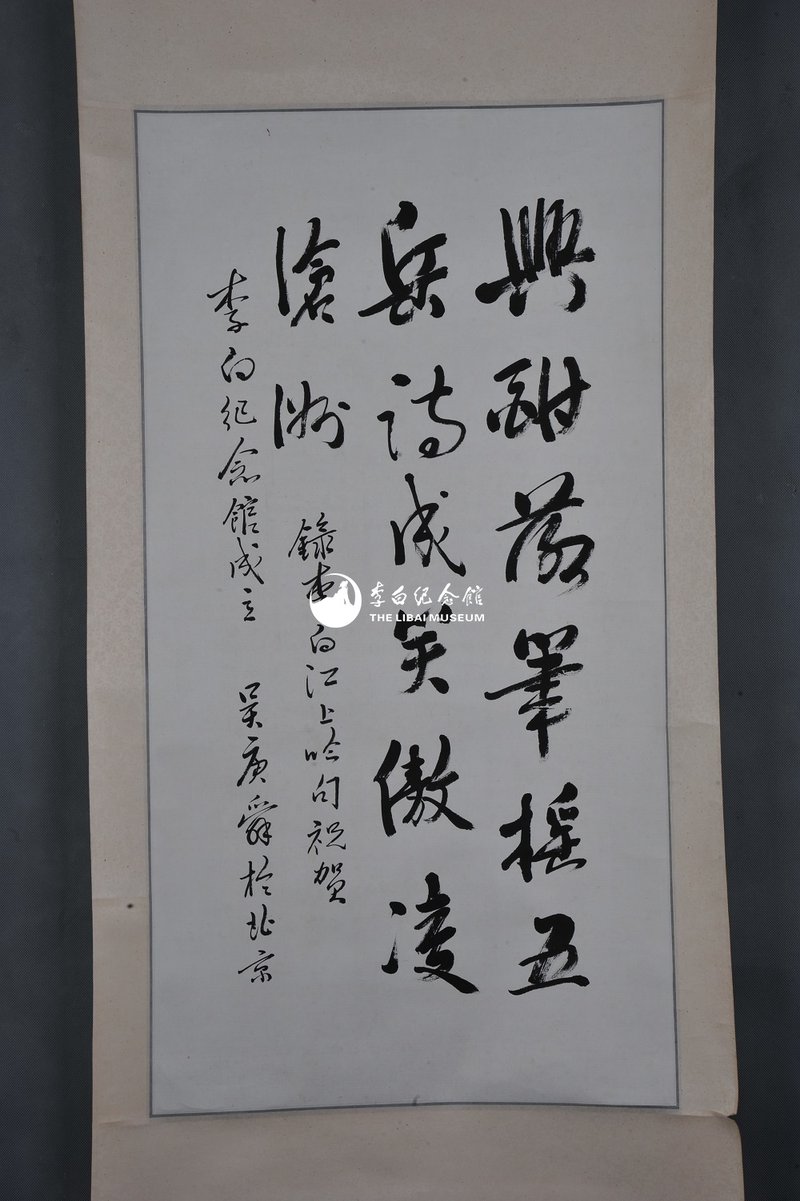 興酣落筆搖五
岳詩成笑傲凌
滄洲
録李白江上吟句祝贺
李白纪念館成立 吴庚舜於北京
李白纪念館
THE LIBAI MUSEUM